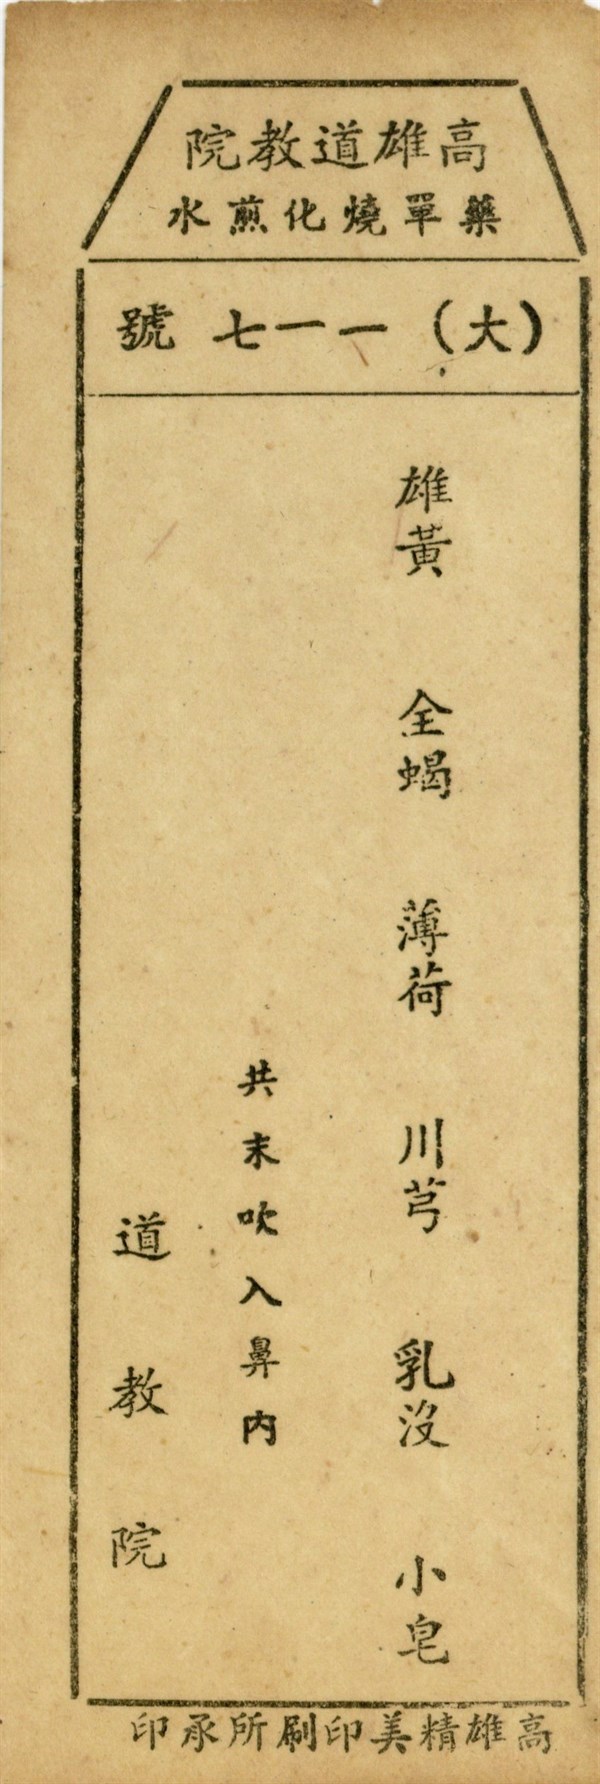 高雄道教院
藥單燒化煎水
(大)一一七號
雄黃 全蝎 薄荷 川芎 乳沒 小皂
共末吹入鼻內
道教院
高雄精美印刷所承印